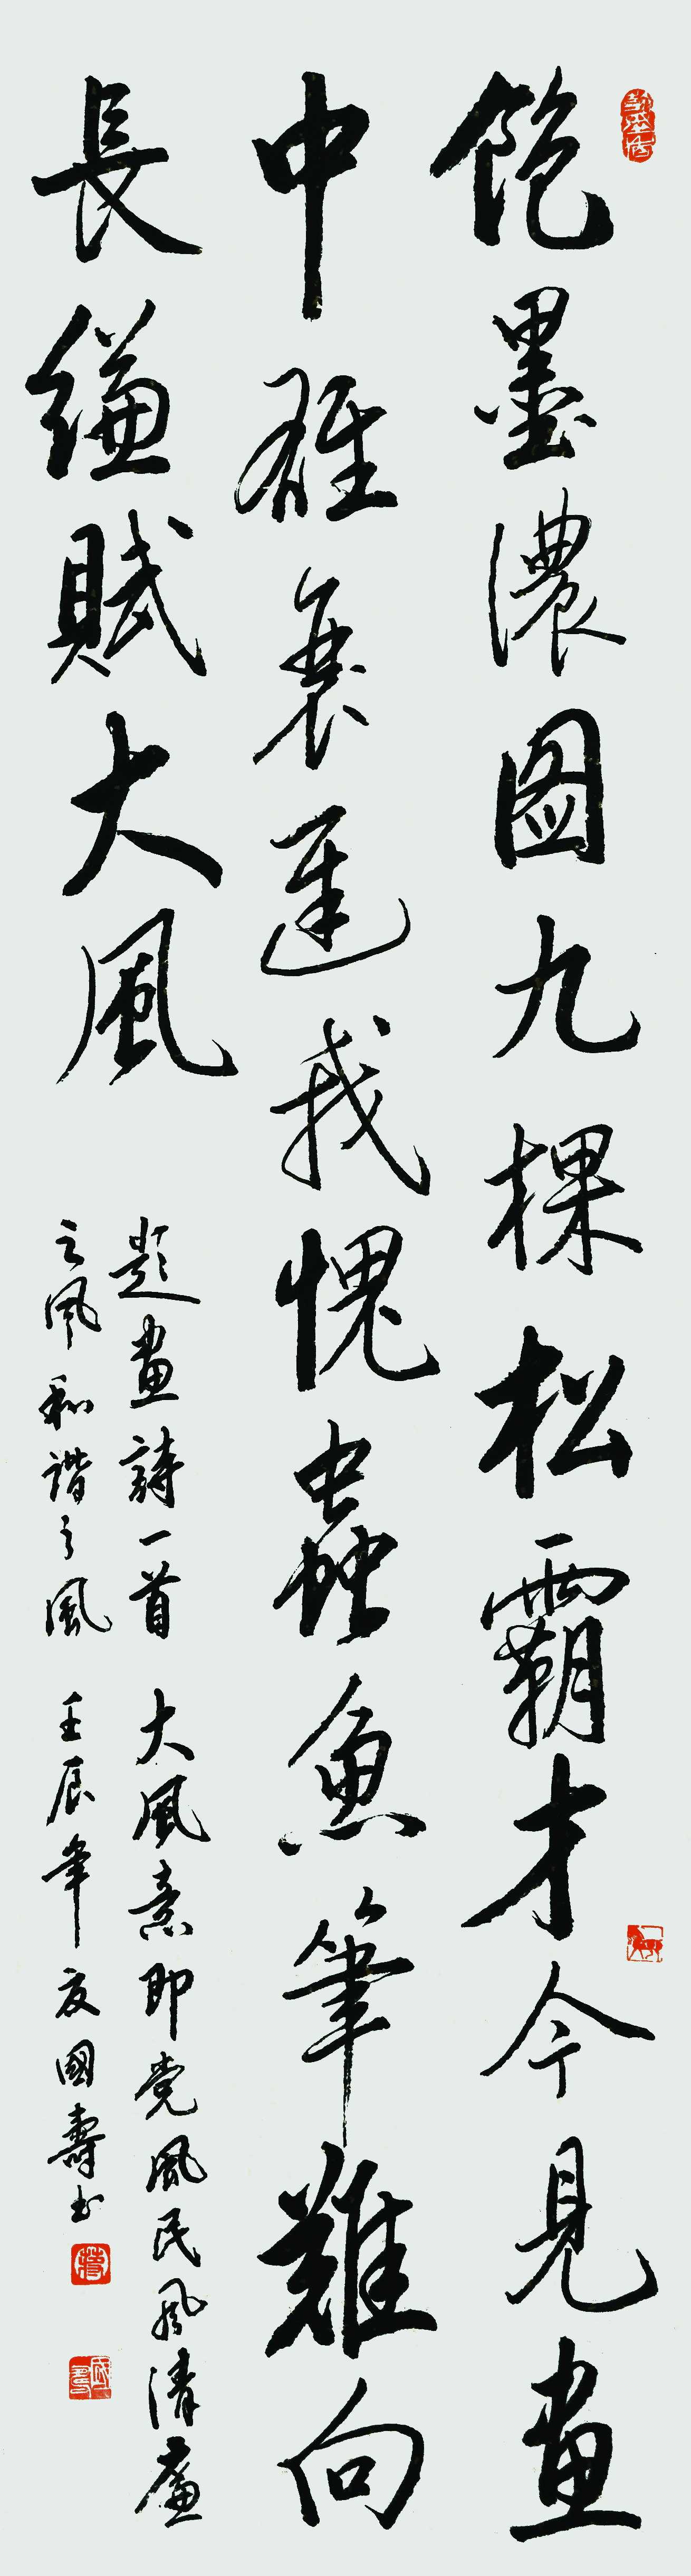 飽墨濃图九棵松霸才今見畫
中雄衰遲我愧蟲魚筆難向
長縑賦大風
題畫詩一首 大風意即党風民風清廉
之風和谐之風 壬辰年夏國壽书